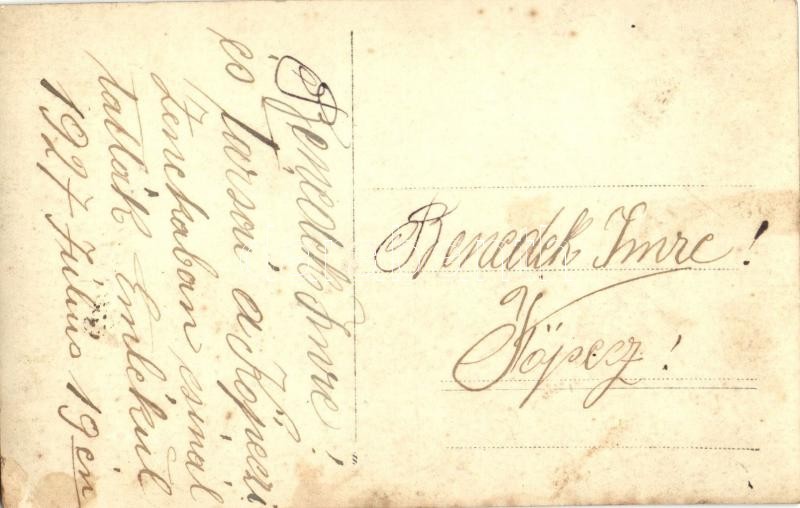 Benedek Imre!
és társai a Köpeczi
Lenckaban csinál
tatták Emlékül
1927 Julius 19 én
Benedek Imre!
Köpecz!